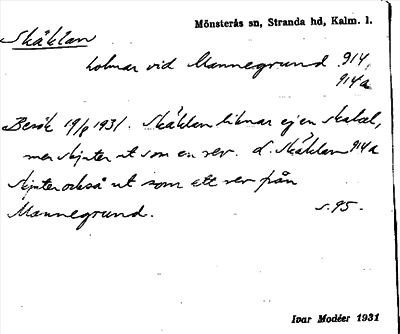 Mönsterås sn, Stranda hd, Kalm. l.
Skäklan
holmar vid Mannegrund 914,
914a
Besök 19/9 1931. Skäklan liknar ej en skakel,
men skjuter ut som en rev. L. Skäklan 914a
skjuter också ut som ett rev från
Mannegrund. s. 95.
Ivar Modéer 1931